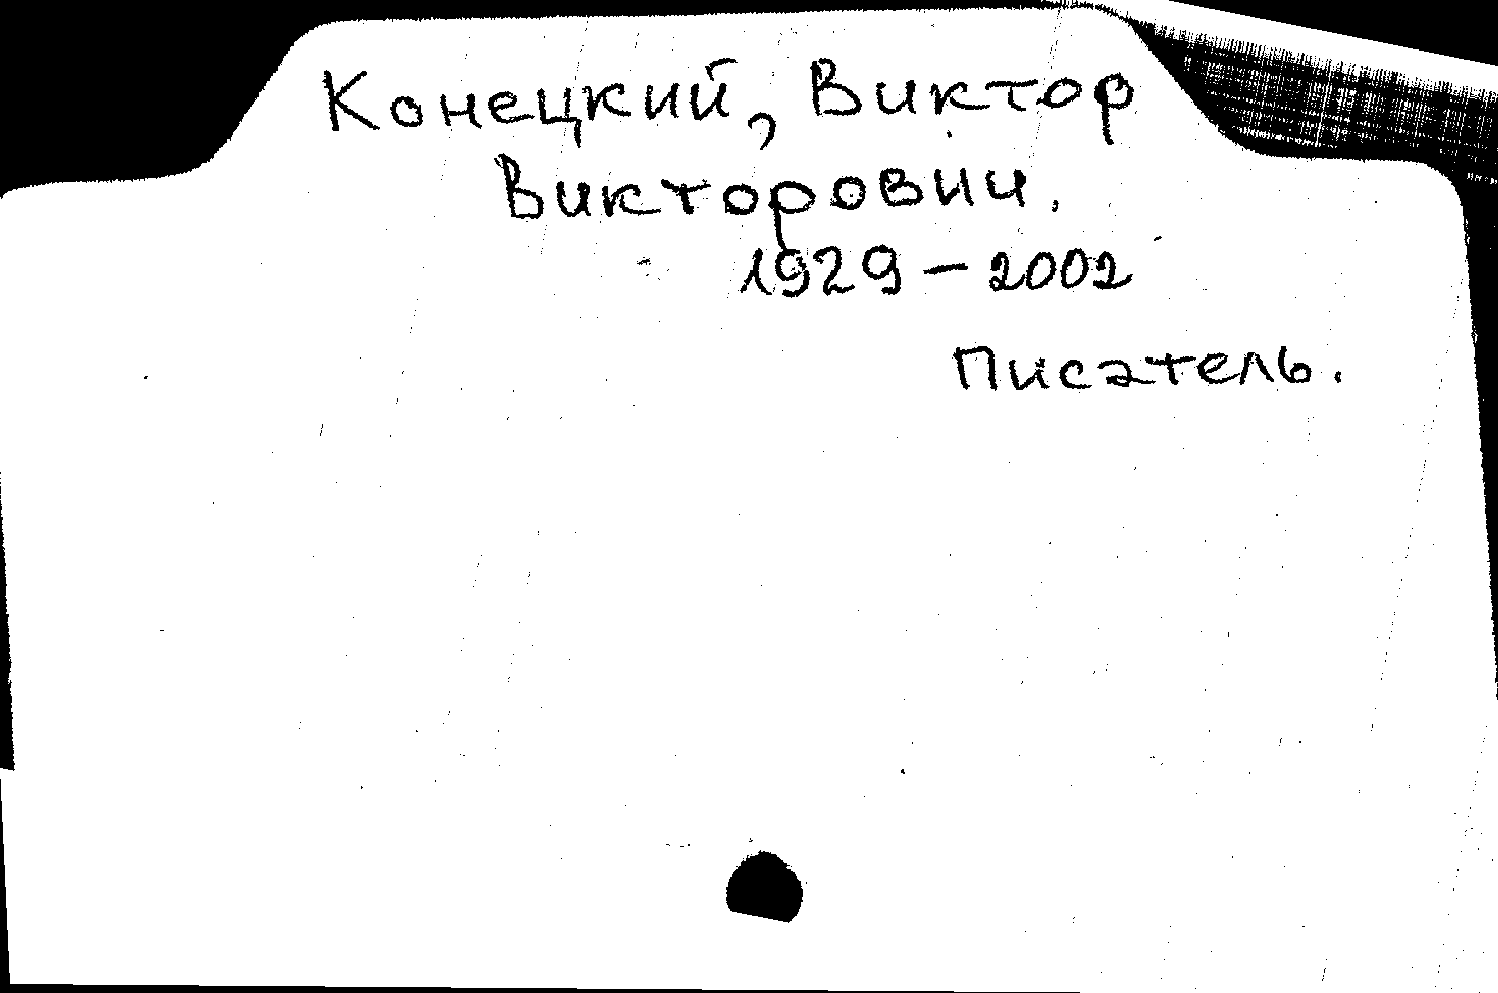 Конецкий, Виктор
Викторович.
1929 – 2002
Писатель.